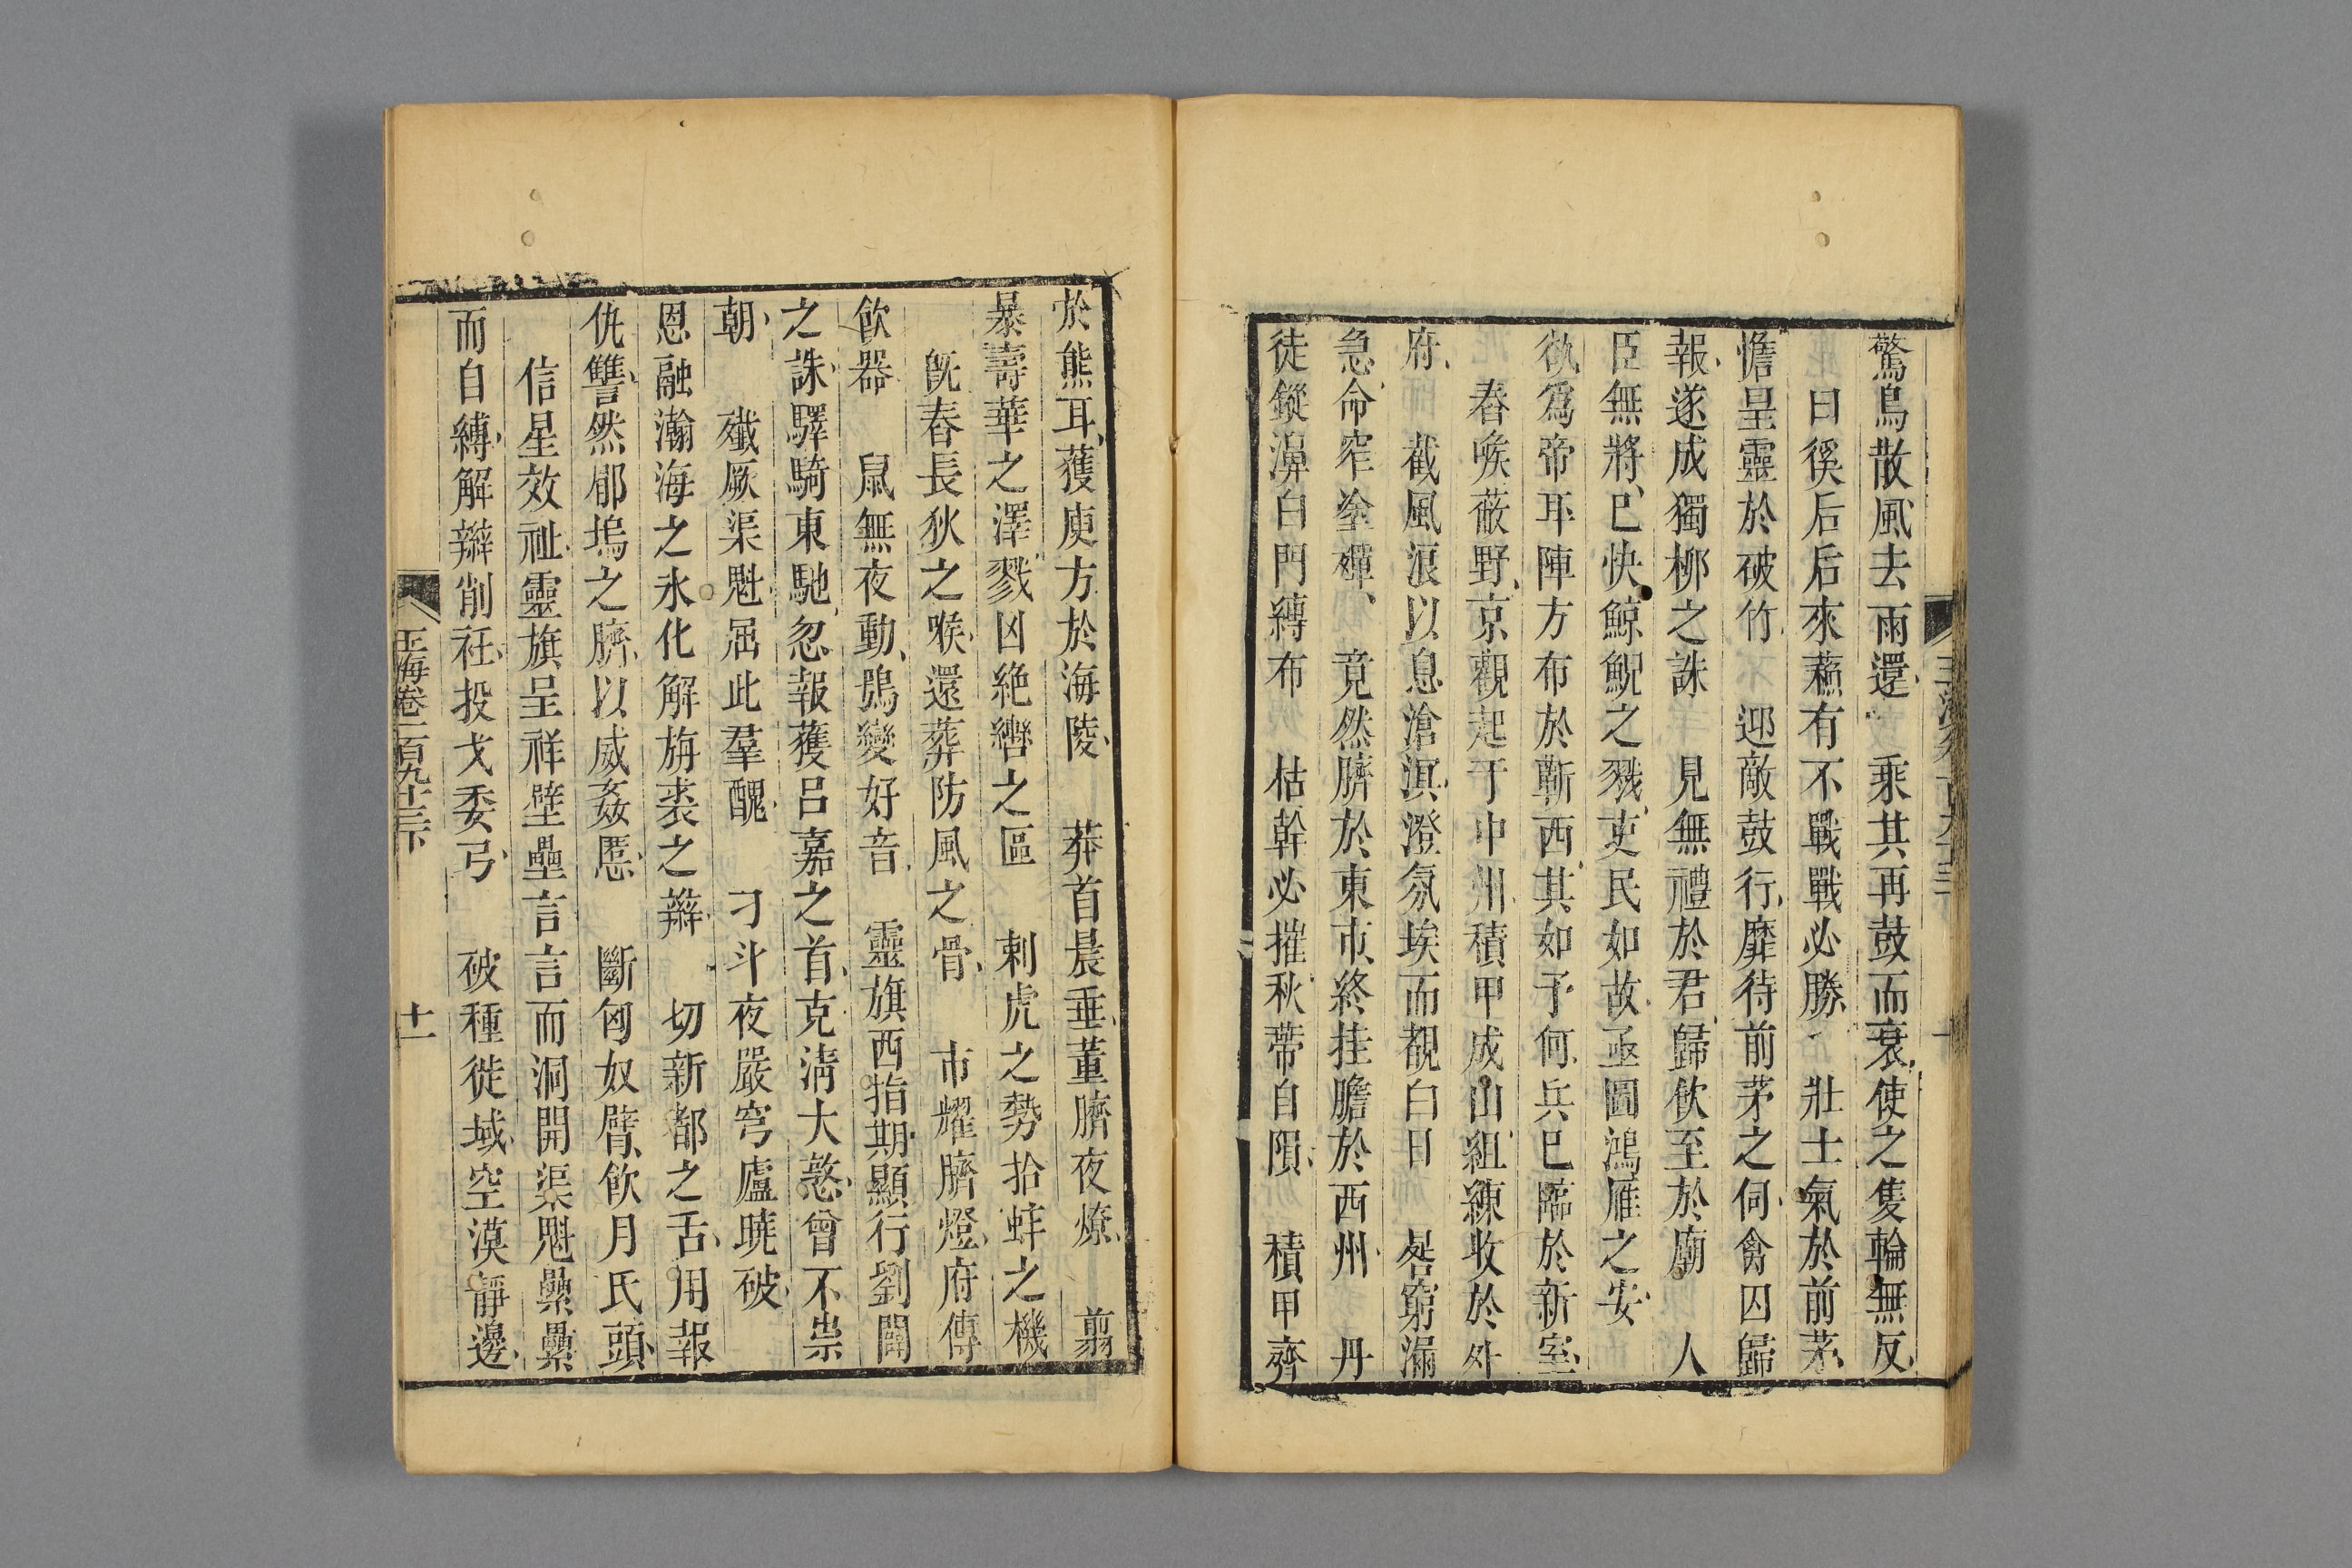 驚鳥散風去雨還　乘其再鼓而衰使之隻輪無反
曰徯后后來蘓有不戰戰必勝　壯士氣於前茅
憺呈靈於破竹　迎敵鼓行靡待前茅之伺禽囚歸
報遂成獨柳之誅　見無禮於君歸飲至於廟　人
臣無將已快鯨鯢之戮吏民如故亟圖鴻雁之安
欲爲帝耳陣方布於蘄西其如予何兵已臨於新室
舂喉蔽野京觀起于中州積甲成山組練收於外
府　截風浪以息滄溟澄氛埃而覩白日　晷窮漏
急命窄塗殫竟然臍於東市終挂膽於西州　丹
徒鏦濞白門縛布　枯幹必摧秋蔕自隕　積甲齊
於熊耳獲庾方於海陵　莽首晨垂董臍夜燎　翦
暴壽華之澤戮凶絶轡之區　刺虎之勢拾蚌之機
旣舂長狄之喉還葬防風之骨　市耀臍燈府傳
飲器　鼠無夜動鴞變好音　靈旗西指期顯行劉闢
之誅驛騎東馳忽報獲呂嘉之首克淸大憝曾不崇
朝　殲厥渠魁屈此羣醜　刁斗夜嚴穹廬曉破
恩融瀚海之氷化解旃裘之辮　切新都之舌用報
仇讐然郿塢之臍以威姦慝　斷匈奴臂飲月氏頭
信星效祉靈旗呈祥壁壘言言而洞開渠魁纍纍
而自縛解辮削衽投戈委弓　破種徙域空漠靜邊
玉海卷二百九十三下　十一